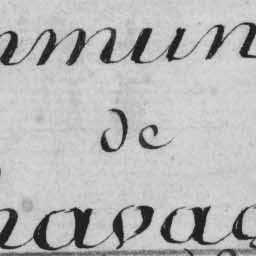 mmun
de
havaç